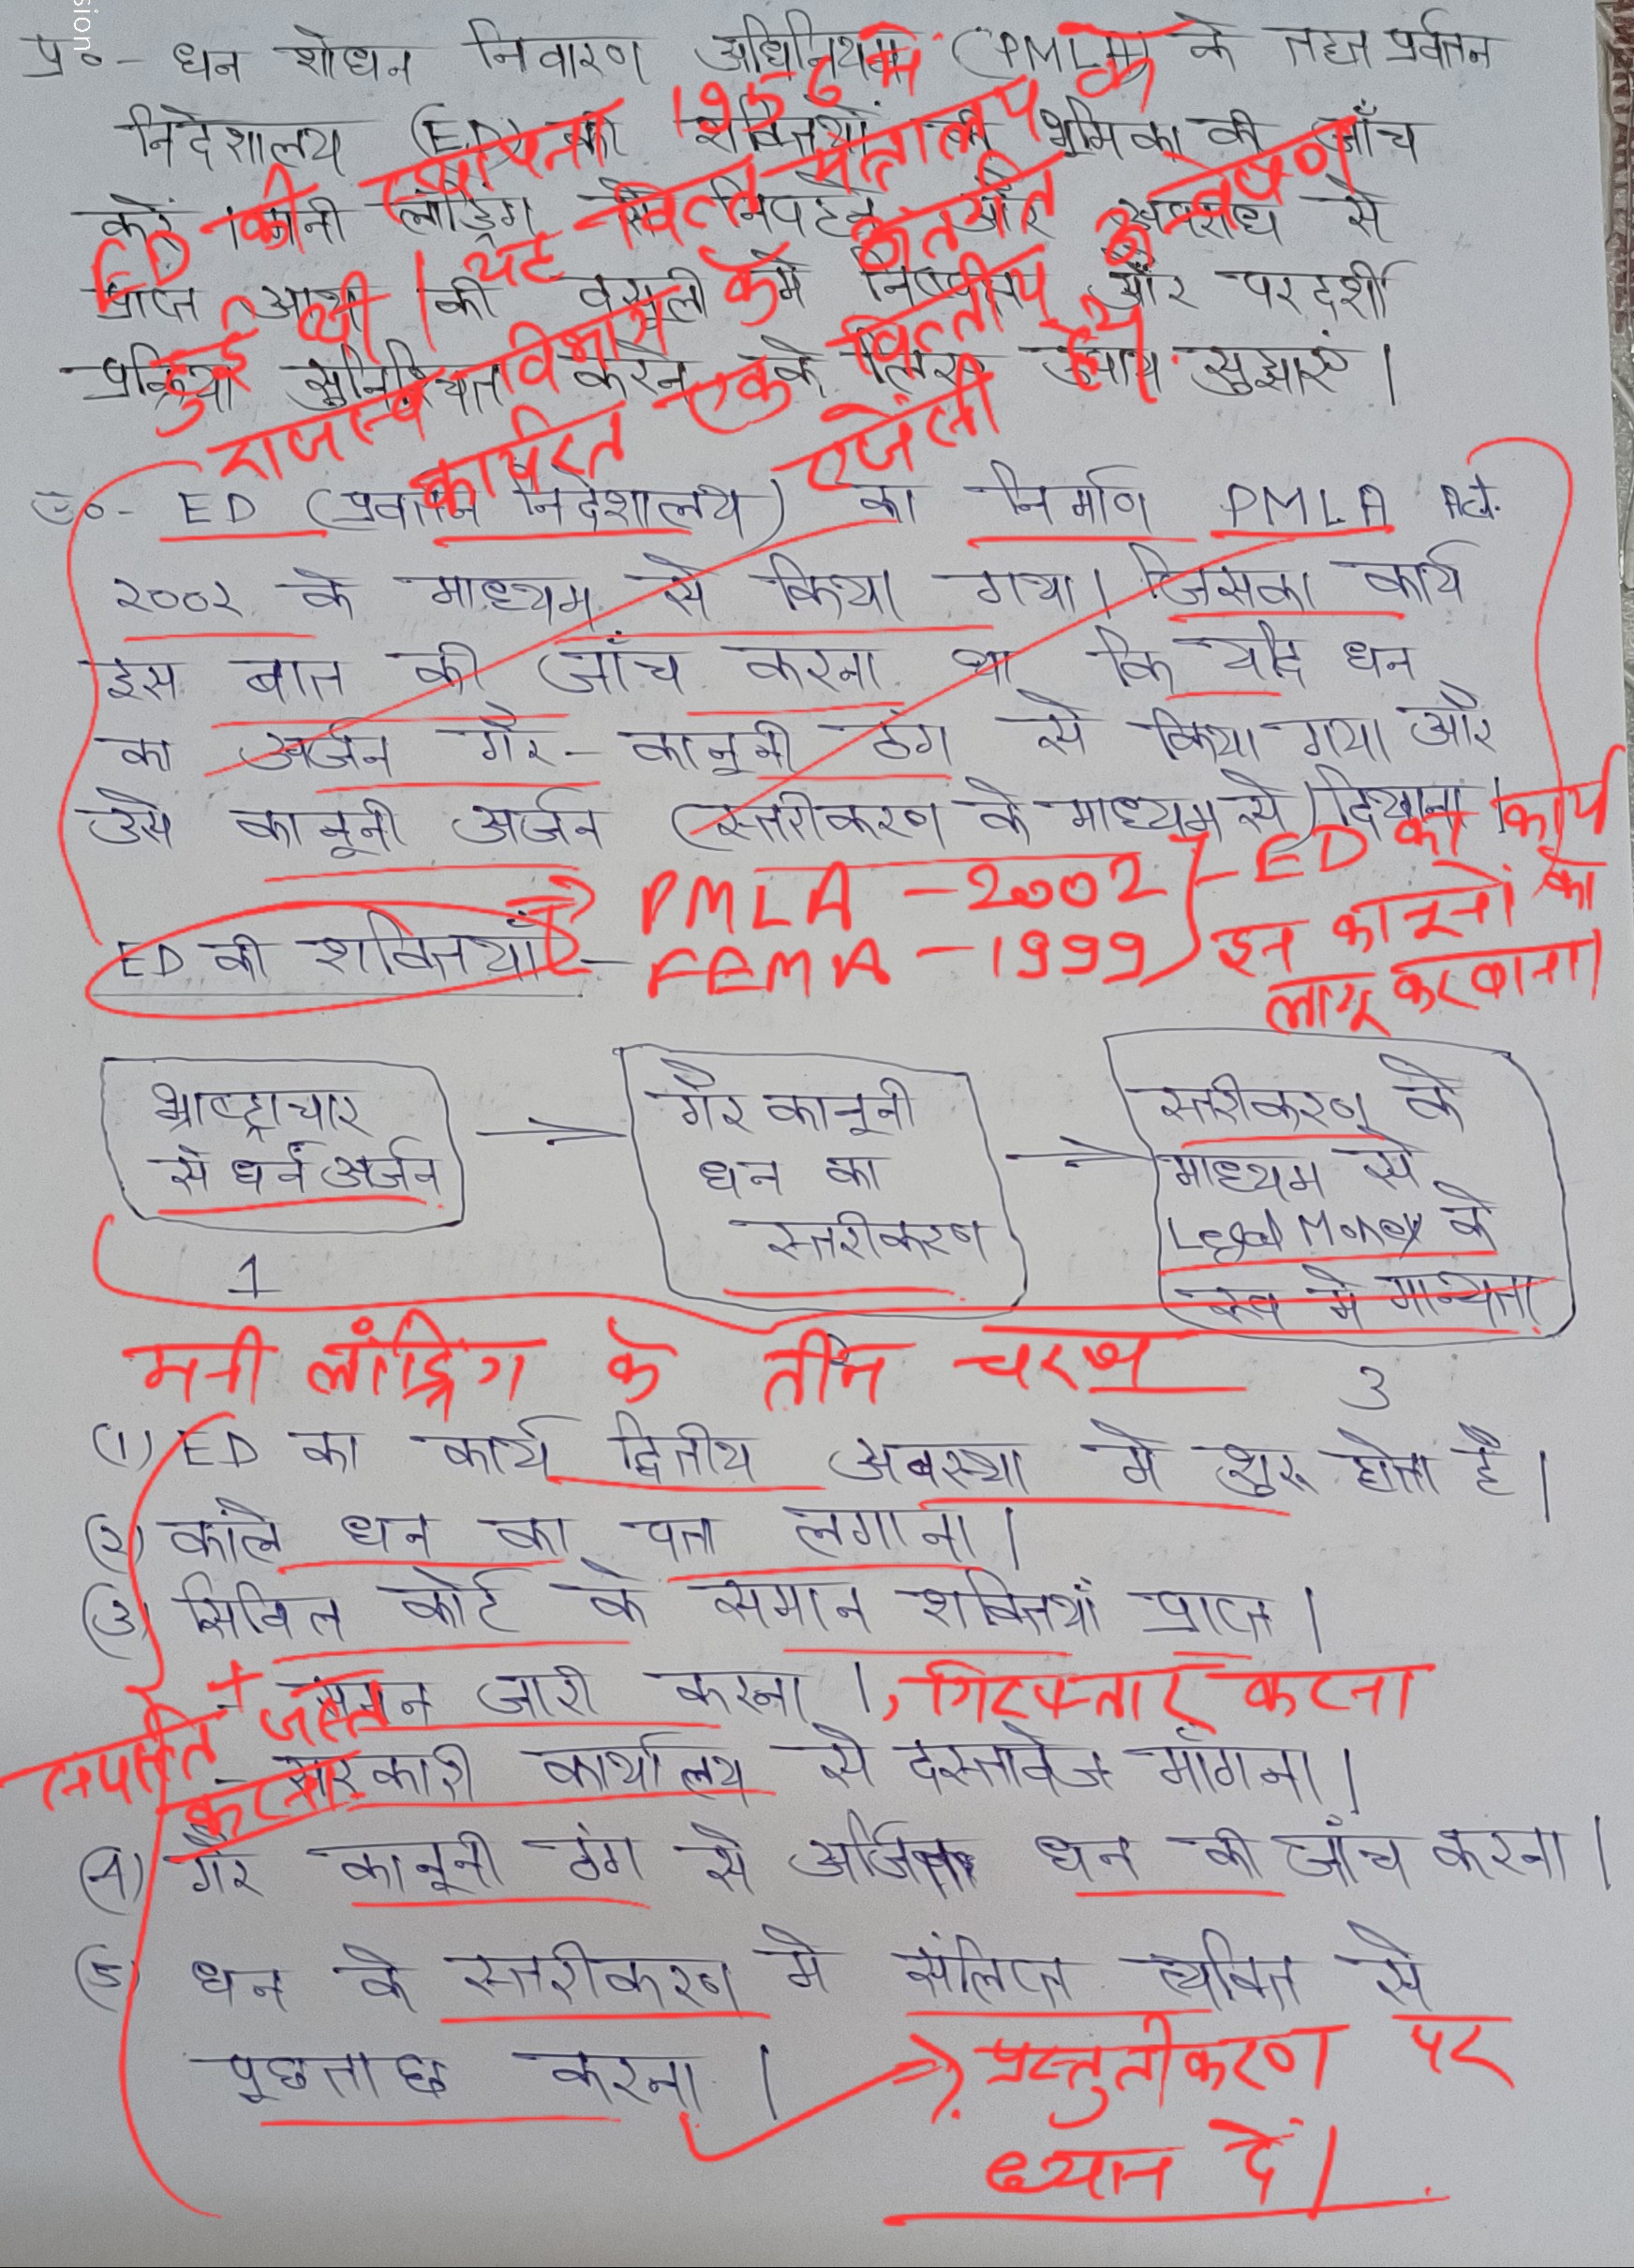 sion
प्र०- धन शोधन निवारण अधिनियम (PMLA) के तहत प्रर्वतन
निदेशालय (ED) की शक्तियों की भूमिका की जाँच
करें। मनी लांड्रिंग से निपटने और अपराध से
प्राप्त आय की वसूली में निष्पक्ष और परदर्शी
प्रक्रिया सुनिश्चित करने के लिए उपाय सुझाएं।
ED की स्थापना 1956 में
हुई थी। यह वित्त मंत्रालय के
राजस्व विभाग के अन्तर्गत
कार्यरत एक वित्तीय अन्वेषण
एजेंसी है।
उ०- ED (प्रवर्तन निदेशालय) का निर्माण PMLA Act.
२००२ के माध्यम से किया गया। जिसका कार्य
इस बात की जाँच करना था कि यदि धन
का अर्जन गैर-कानूनी ढंग से किया गया और
उसे कानूनी अर्जन (स्तरीकरण के माध्यम से) दिखाना।
ED की शक्तियाँ -
PMLA - 2002
FEMA - 1999
- ED का कार्य
इन कानूनों का
लागू करवाना।
भ्राष्ट्राचार
से धन अर्जन
1
गैर कानूनी
धन का
स्तरीकरण
स्तरीकरण के
माध्यम से
Legal Money के
रूप में मान्यता
3
मनी लांड्रिंग के तीन चरण
(1) ED का कार्य द्वितीय अवस्था में शुरू होता है।
(२) काले धन का पता लगाना।
(3) सिविल कोर्ट के समान शक्तियां प्राप्त।
- समन जारी करना।, गिरफ्तार करना
+ सपत्ति जब्त
करना
- सरकारी कार्यालय से दस्तावेज माँगना।
(4) गैर कानूनी ढंग से अर्जित धन की जाँच करना।
(5) धन के स्तरीकरण में संलिप्त व्यक्ति से
पूछताछ करना।
प्रस्तुतीकरण पर
ध्यान दें।